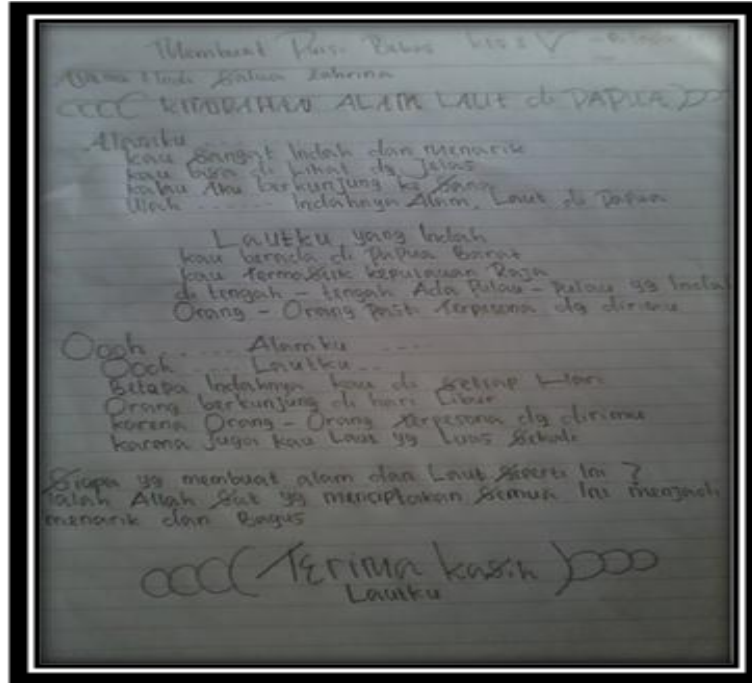 Membuat Puisi Bebas
Nama Salwa Zahrina
KEINDAHAN ALAM LAUT di PAPUA
Alamku
kau Sangat Indah dan menarik
kau bisa di Lihat dg Jelas
kalau Aku berkunjung ke Sana
Wah ....... Indahnya Alam, Laut di Papua
Lautku yang Indah
kau berada di Papua Barat
kau Termasuk kepulauan Raja
di tengah - tengah Ada Pulau - Pulau yg Indah
Orang - Orang Pasti Terpesona dg dirimu
Oooh ..... Alamku ....
Oooh ..... Lautku ...
Betapa Indahnya kau di Setiap Hari
Orang berkunjung di hari Libur
karena Orang - Orang Terpesona dg dirimu
karena Juga kau Laut yg Luas Sekali
Siapa yg membuat alam dan Laut Seperti Ini ?
Ialah Allah Swt yg menciptakan Semua Ini menjadi
menarik dan Bagus
(Terima kasih)
Lautku